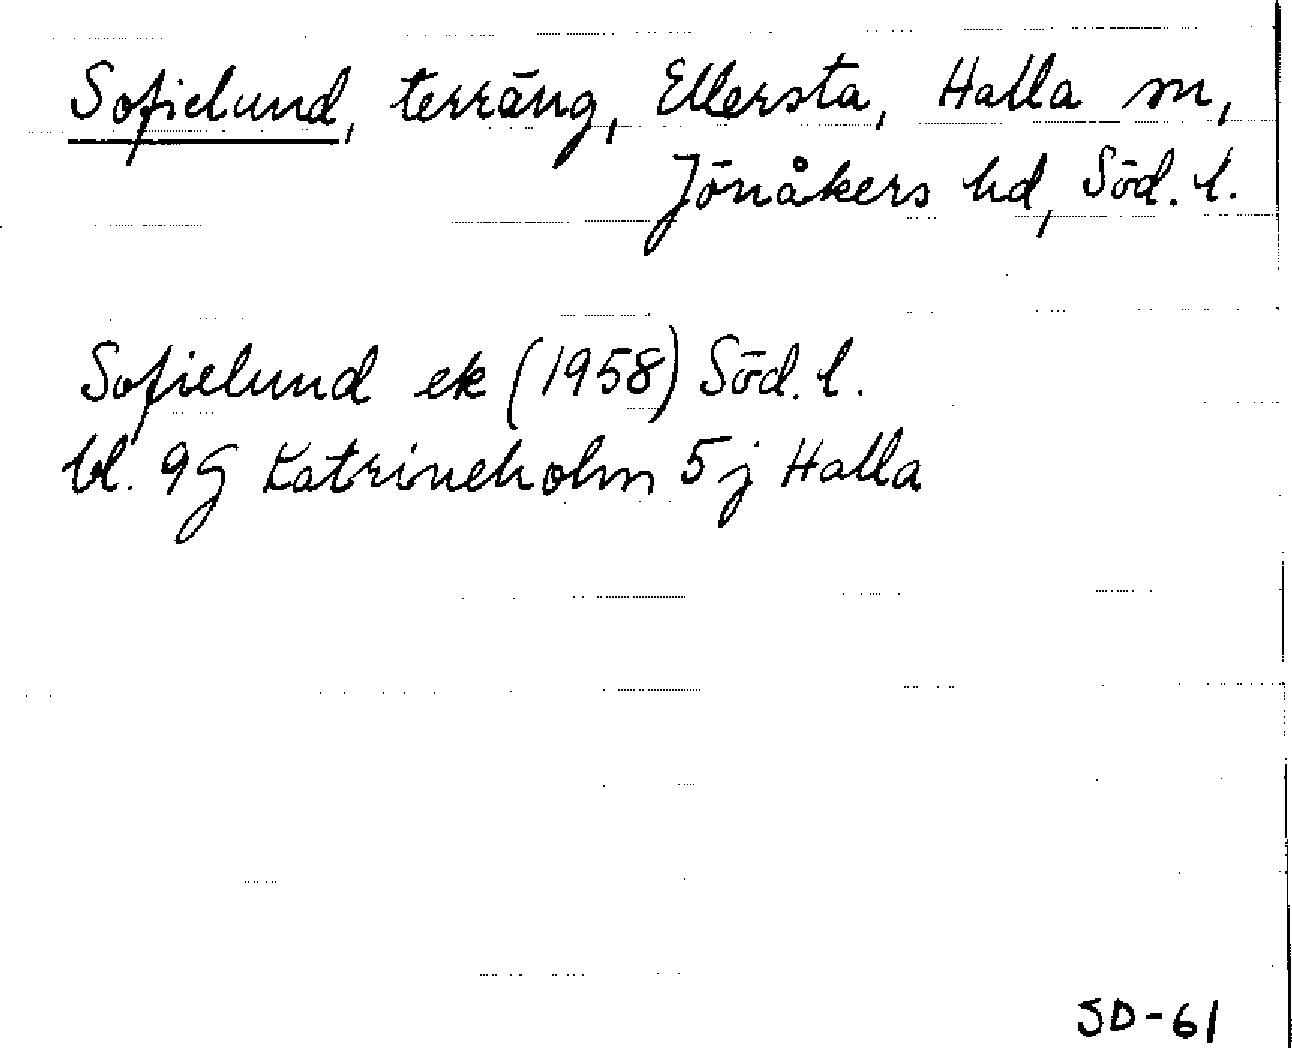 Sofielund, terräng, Ellersta, Halla sn,
Jönåkers hd, Söd. l.
Sofielund ek (1958) Söd. l.
bl. 9G Katrineholm 5j Halla
SD-61